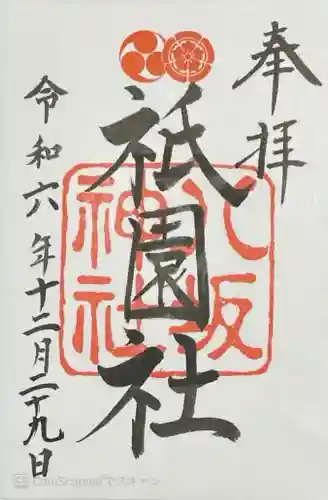 奉拝
八坂
神社
祇園社
令和六年十二月二十九日
CamScannerでスキャン